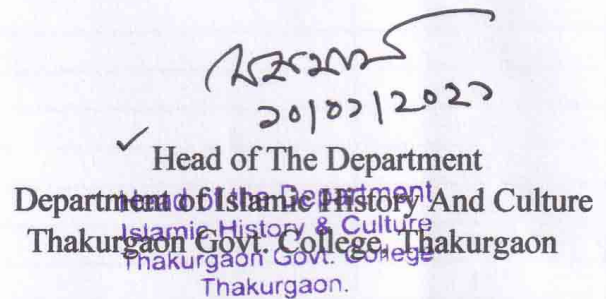 ✓ Head of The Department
Department of Islamic History And Culture
Thakurgaon Govt. College, Thakurgaon
Head of the Department
Islamic History & Culture
Thakurgaon Govt. College
Thakurgaon.